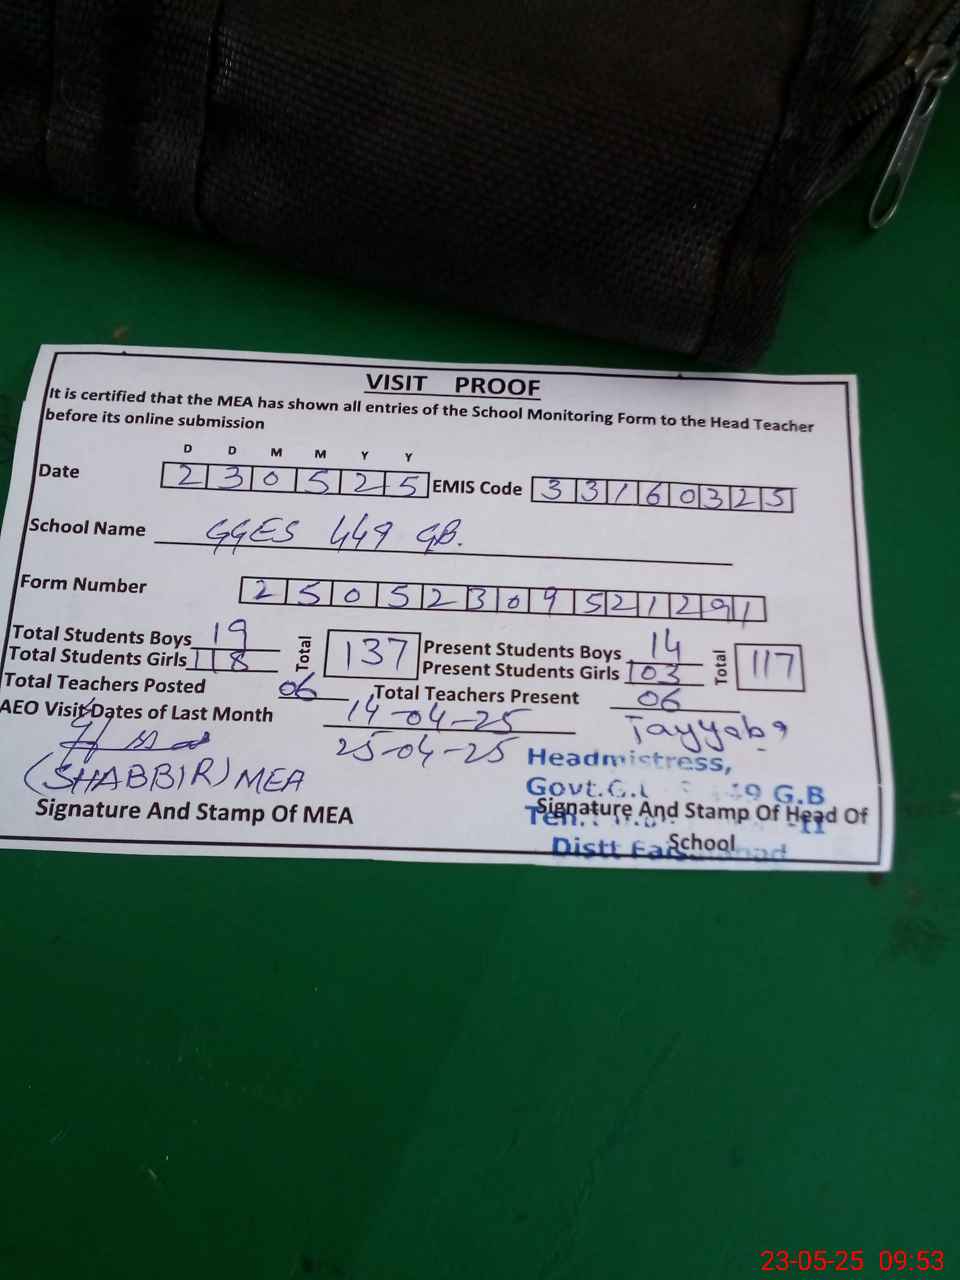 VISIT PROOF
It is certified that the MEA has shown all entries of the School Monitoring Form to the Head Teacher
before its online submission
D D M M Y Y
Date 2 3 0 5 2 5 EMIS Code 3 3 1 6 0 3 2 5
School Name GGES 449 GB.
Form Number 2 5 0 5 2 3 0 9 5 2 1 2 9 1
Total Students Boys 19 Total 137 Present Students Boys 14 Total 117
Total Students Girls 118 Present Students Girls 103
Total Teachers Posted 06 Total Teachers Present 06
AEO Visit Dates of Last Month 14-04-25 Tayyaba
25-04-25
Headmistress,
(SHABBIR) MEA
Govt.G. 49 G.B
Signature And Stamp Of MEA Signature And Stamp Of Head Of
School
-II
Distt
23-05-25 09:53